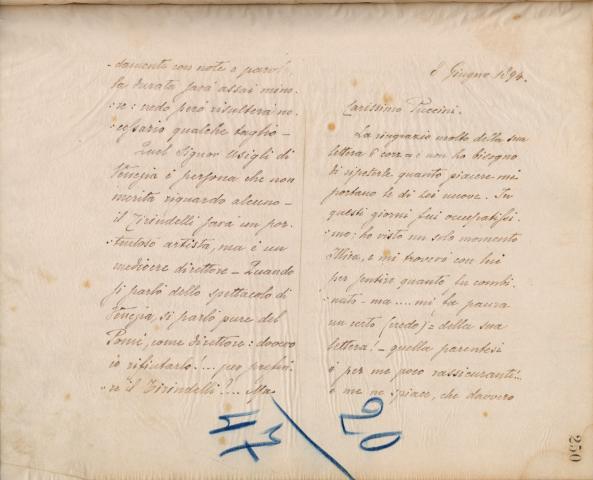 8 Giugno 1894.
Carissimo Puccini.
La ringrazio molto della sua
lettera 6 corr.e e non ho bisogno
di ripeterle quanto piacere mi
portano le di Lei nuove. In
questi giorni fui occupatissi-
:mo: ho visto un solo momento
Illica, e mi troverò con lui
per sentire quanto fu combi-
:nato - ma .... mi fa paura
un certo (credo)? della sua
lettera! - quella parentesi
è per me poco rassicurante!...
e me ne spiace, che davvero
-damente con note e parol
la durata sarà assai mino-
:re: credo però risulterà ne-
:cessario qualche taglio -
Quel Signor Usigli di
Venezia è persona che non
merita riguardo alcuno -
il Tirindelli sarà un por-
:tentoso artista, ma è un
mediocre direttore - Quando
si parlò dello spettacolo di
Venezia, si parlò pure del
Pomè, come direttore: dovevo
io rifiutarlo!... per preferi-
re il Tirindelli!... Ma
47/20
250